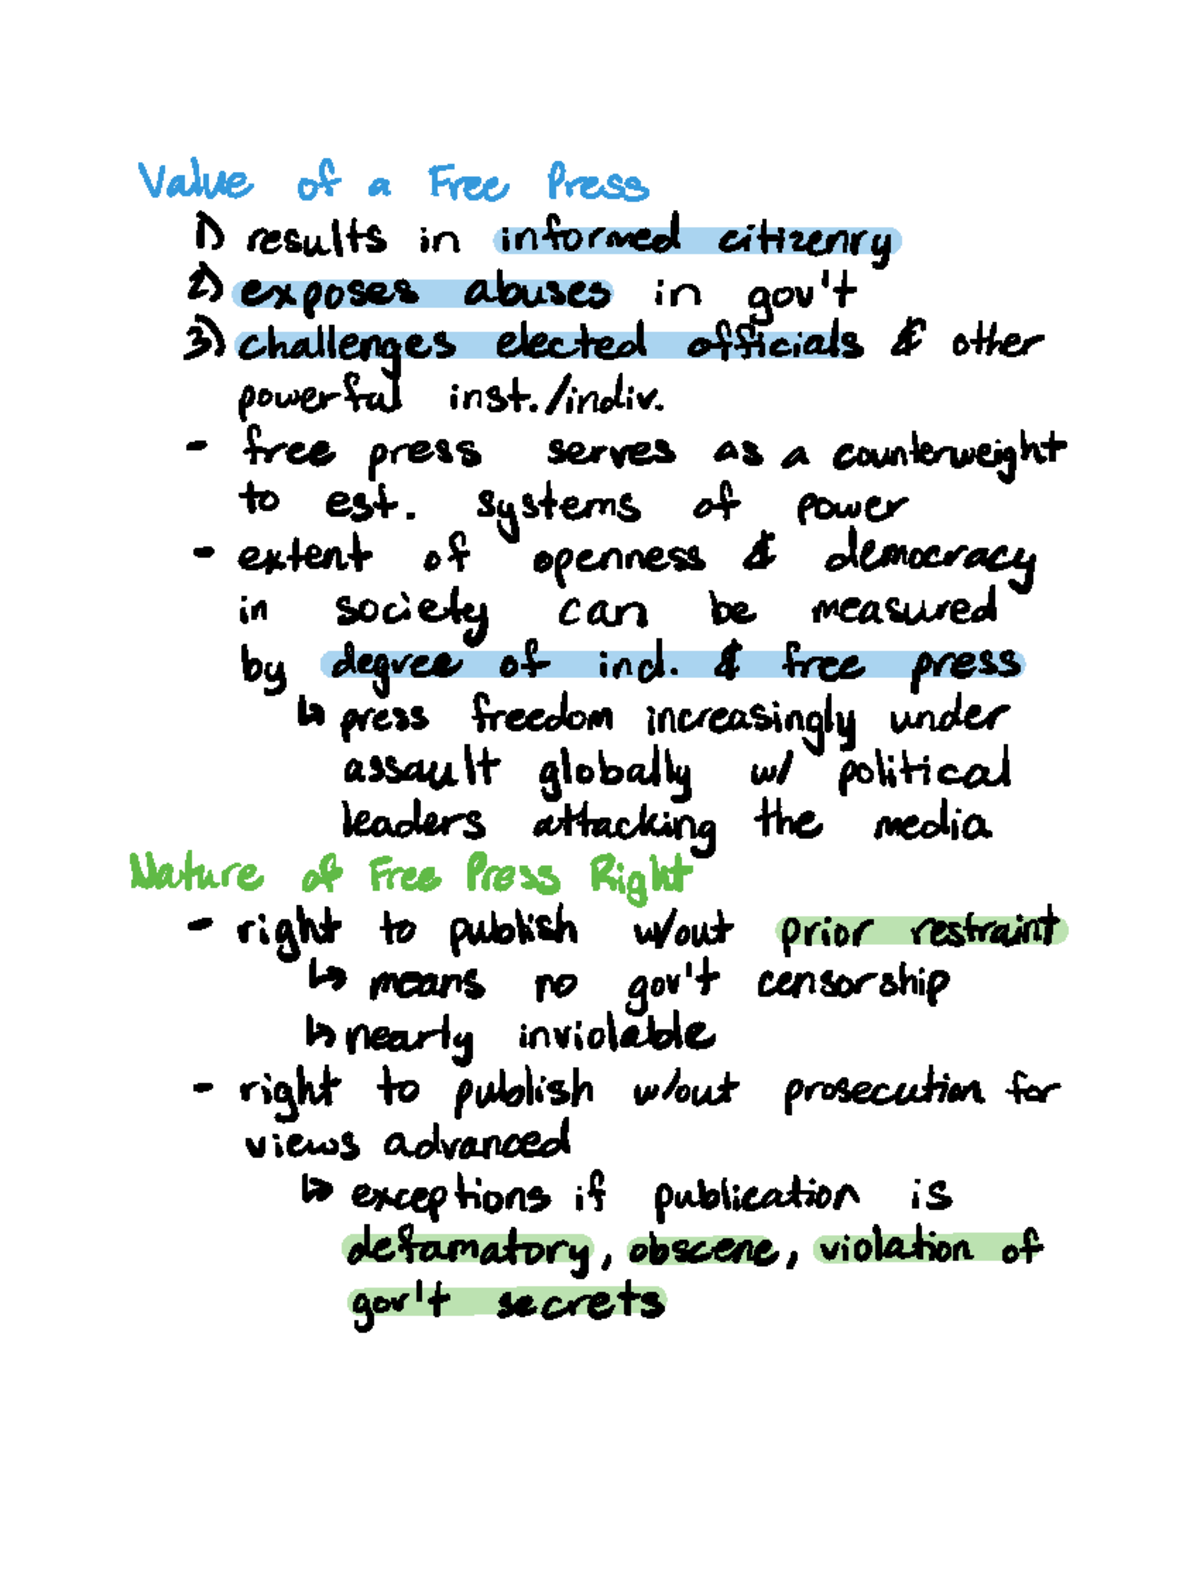 Value of a Free Press
1) results in informed citizenry
2) exposes abuses in gov't
3) challenges elected officials & other
powerful inst./indiv.
- free press serves as a counterweight
to est. systems of power
- extent of openness & democracy
in society can be measured
by degree of ind. & free press
↳ press freedom increasingly under
assault globally w/ political
leaders attacking the media
Nature of Free Press Right
- right to publish w/out prior restraint
↳ means no gov't censorship
↳ nearly inviolable
- right to publish w/out prosecution for
views advanced
↳ exceptions if publication is
defamatory, obscene, violation of
gov't secrets